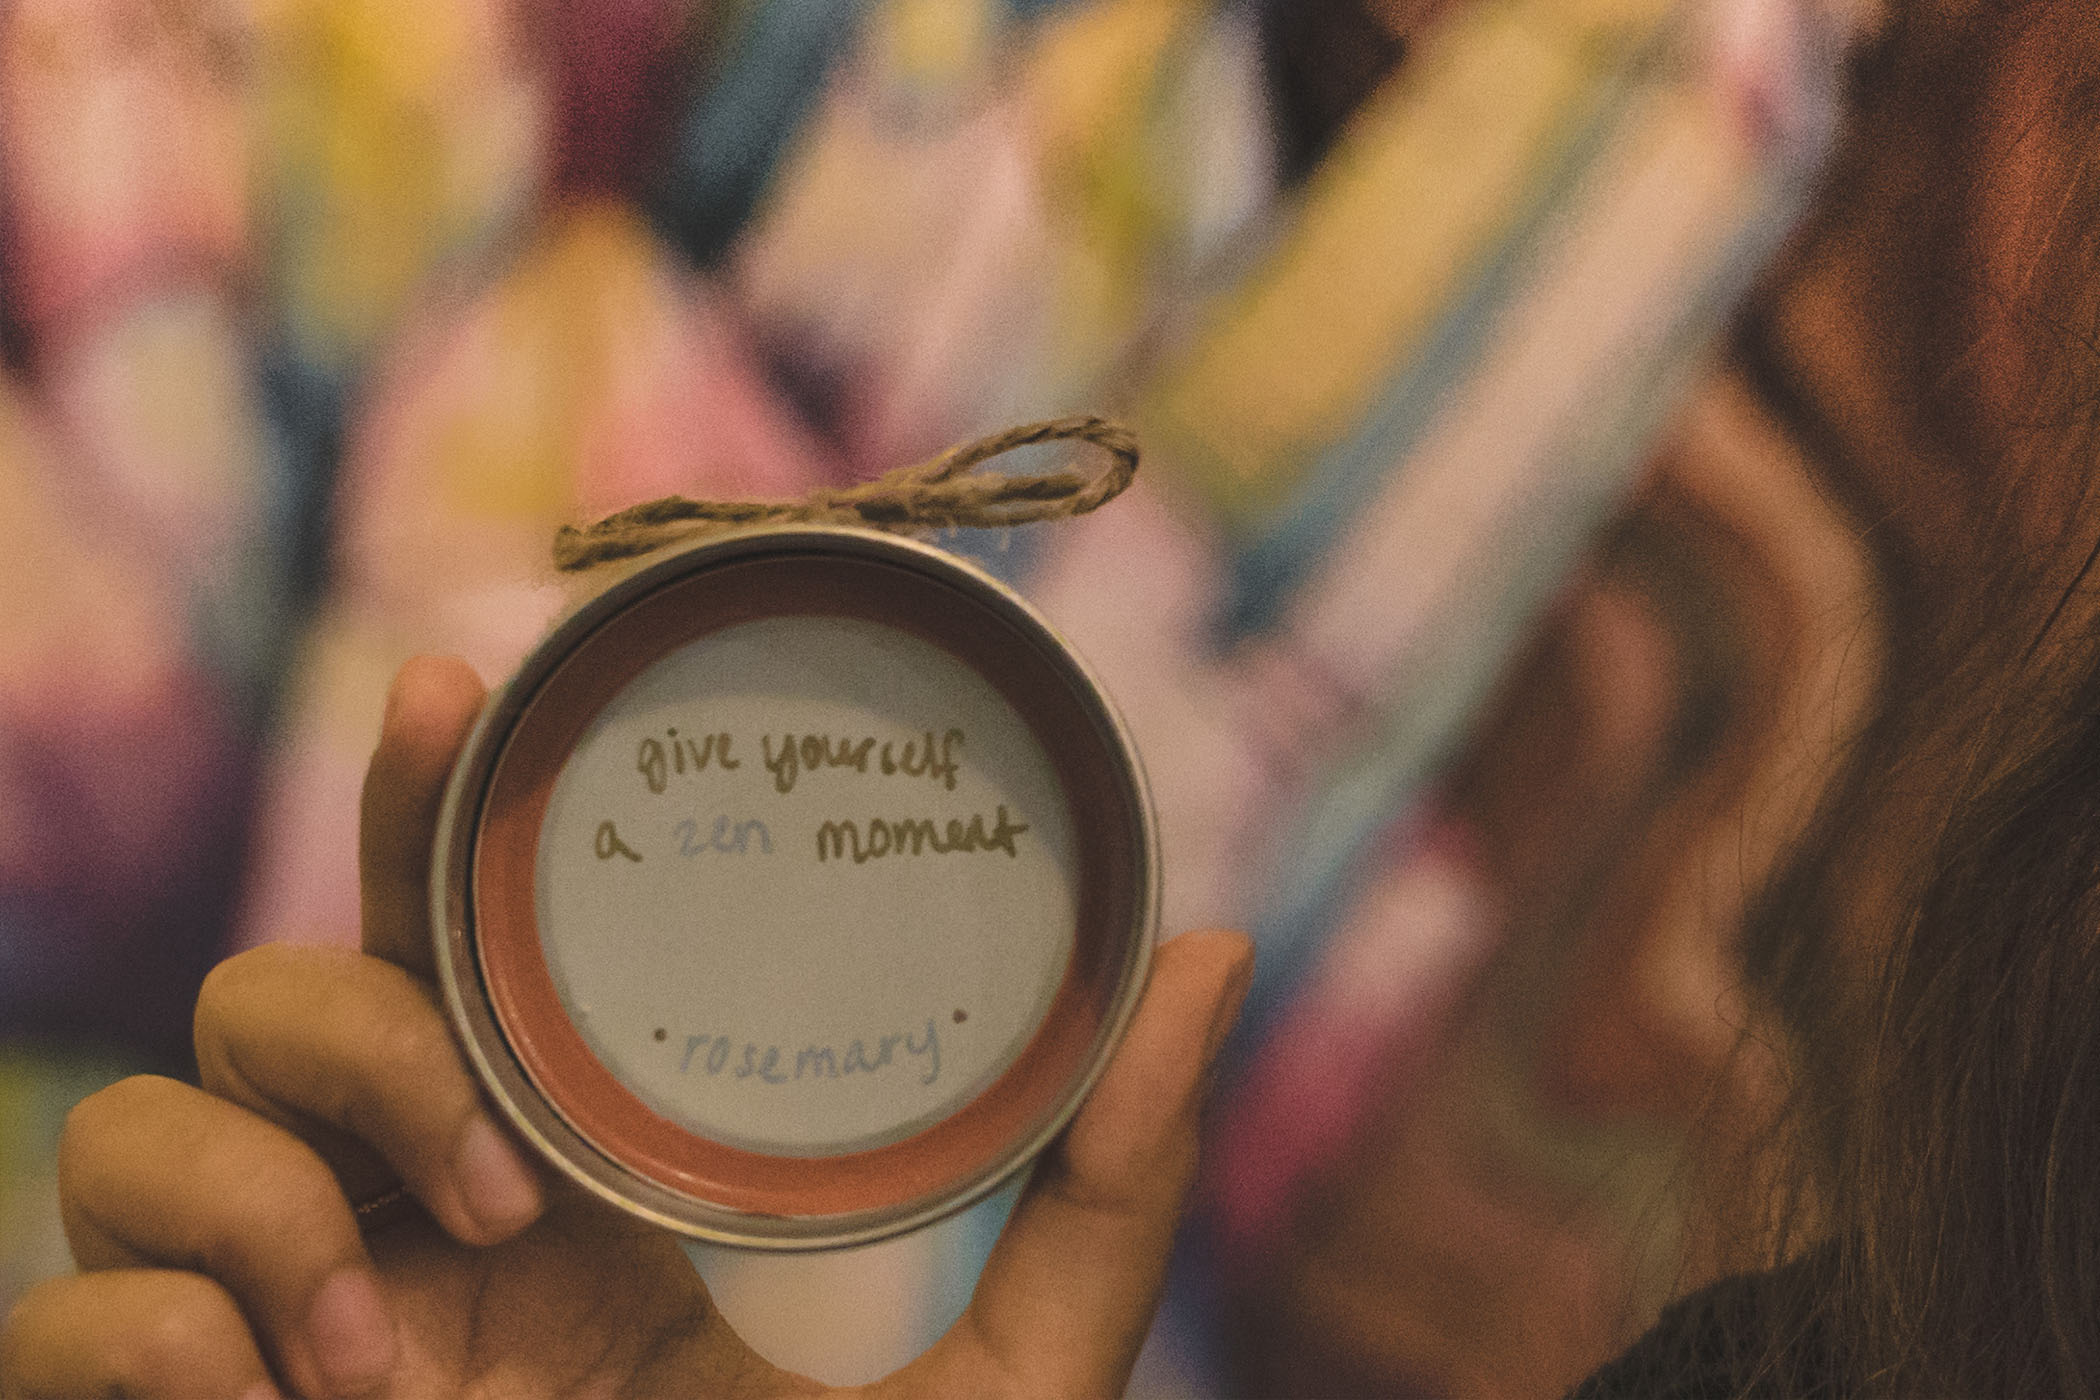 give yourself
a zen moment
• rosemary •